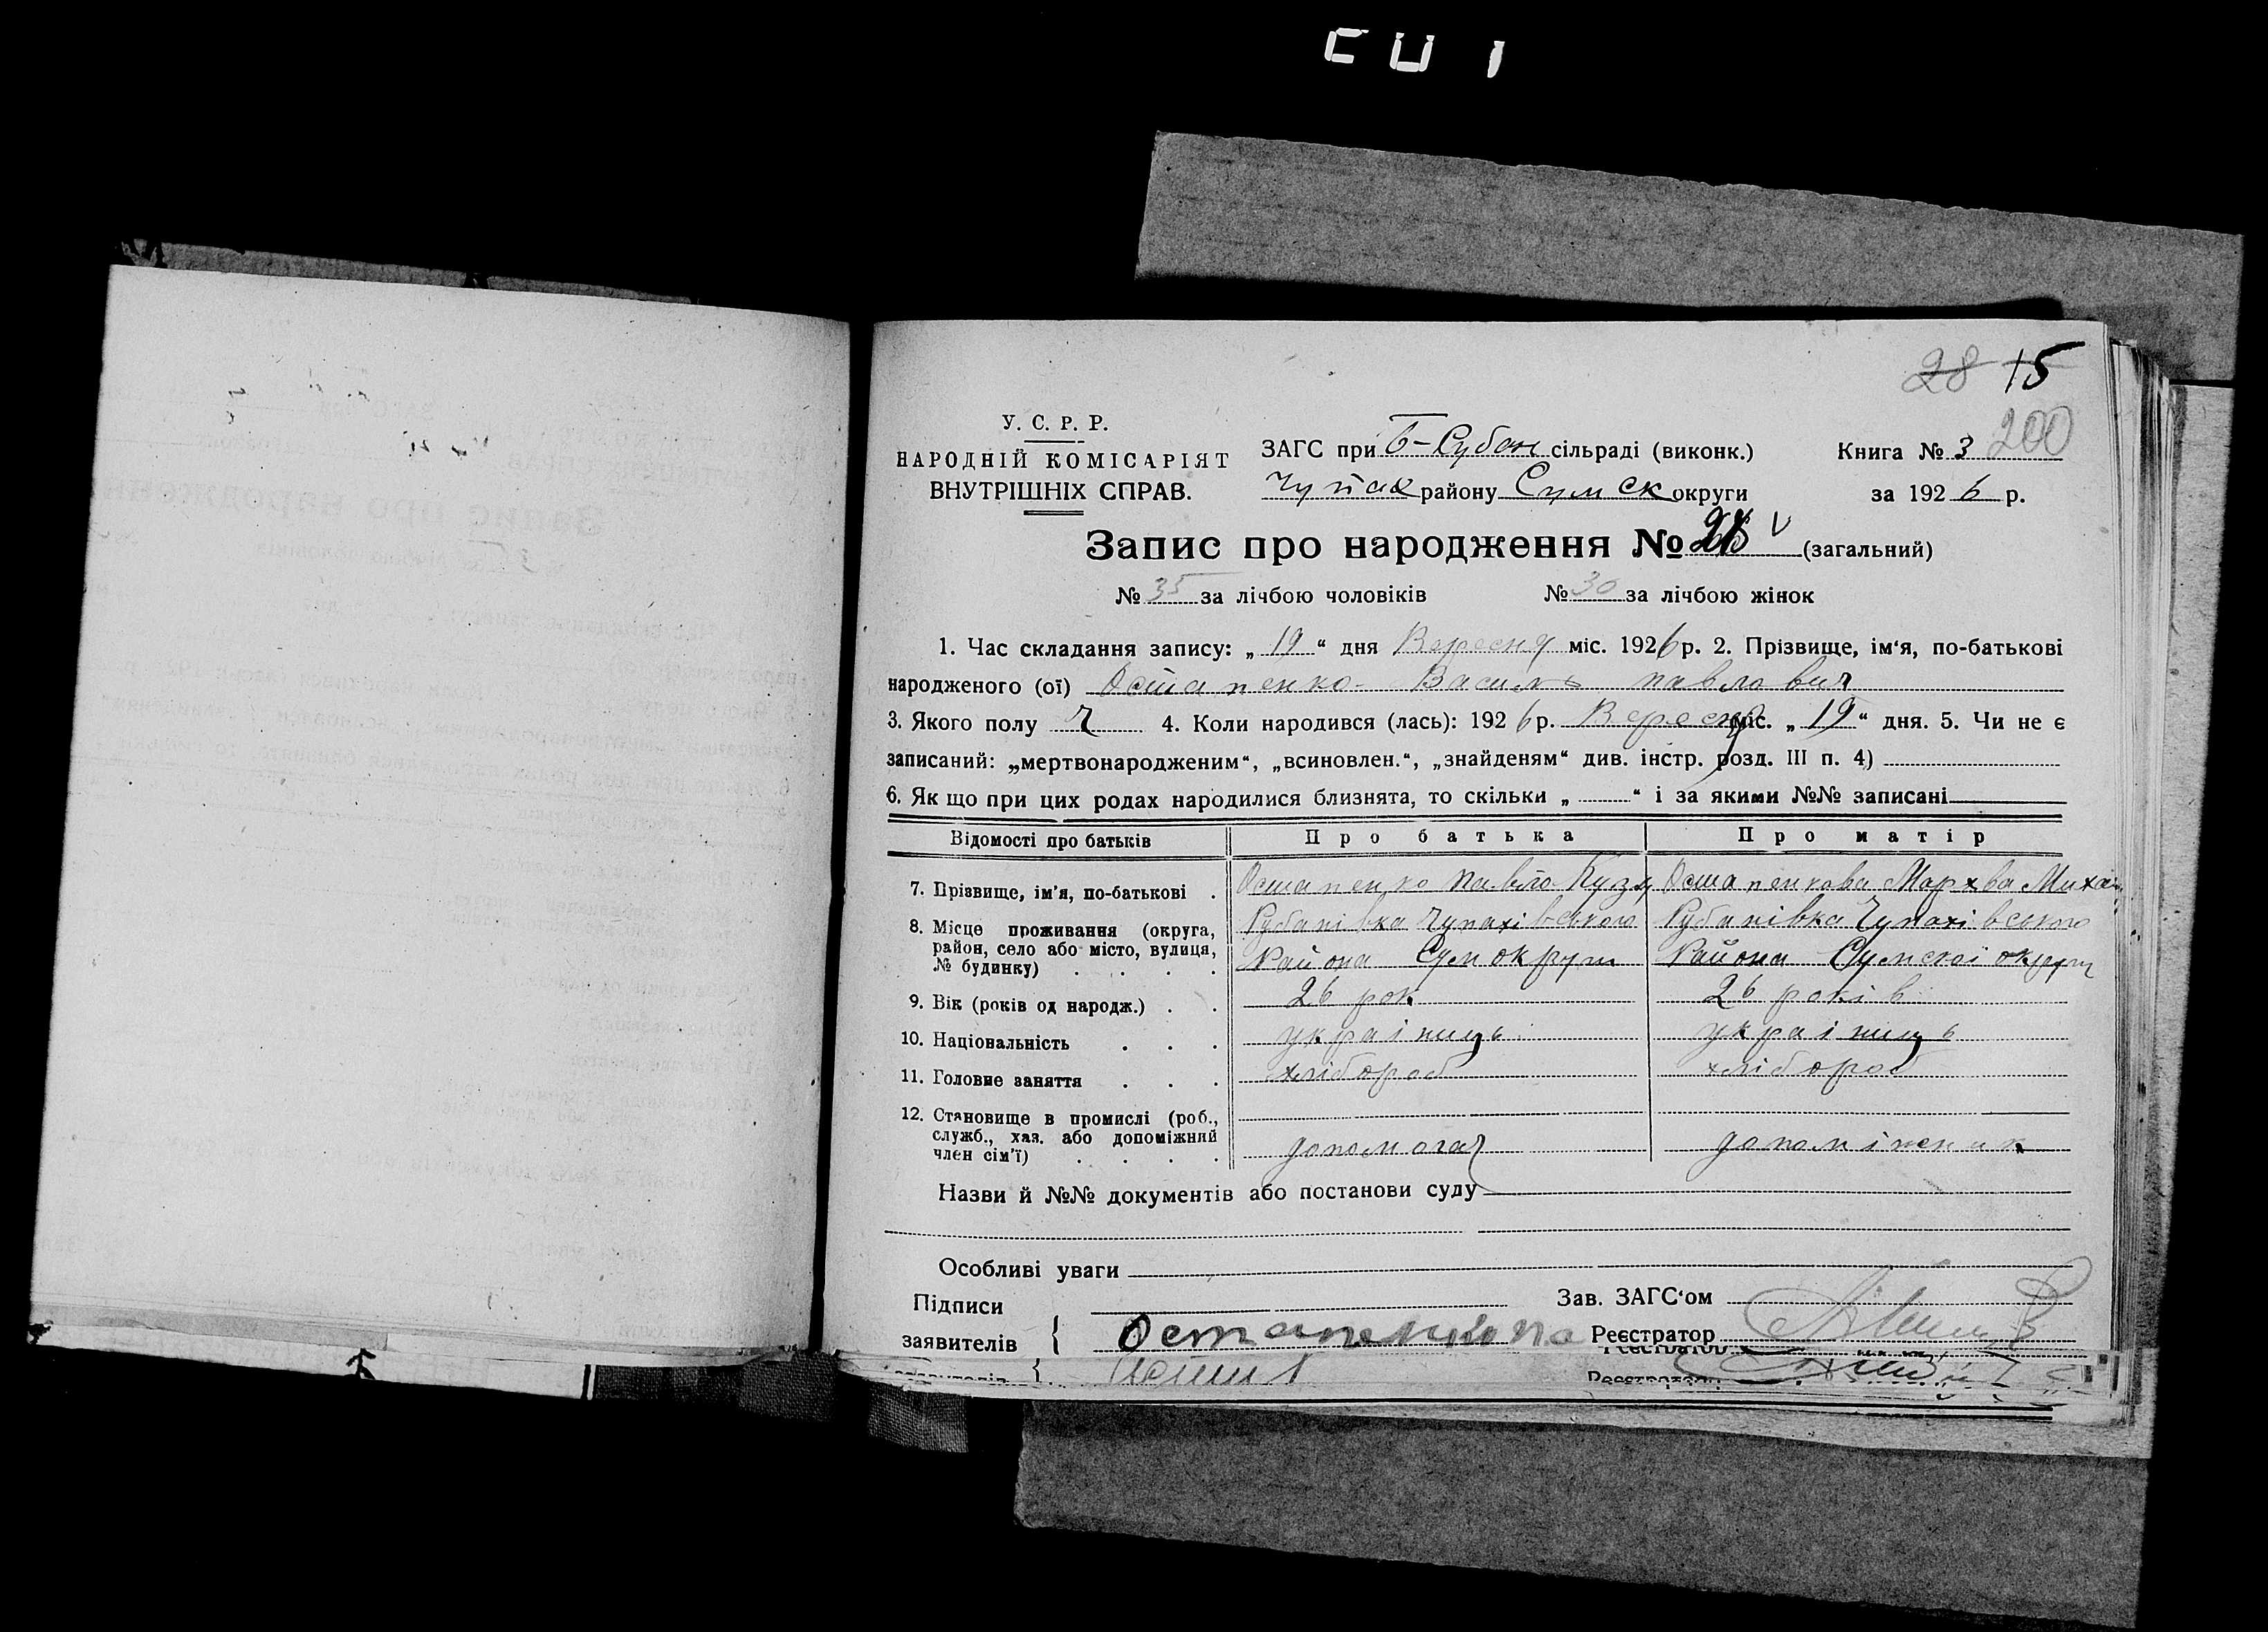 28 15
200
У. С. Р. Р.
НАРОДНІЙ КОМІСАРІЯТ
ВНУТРІШНІХ СПРАВ.
ЗАГС при сільраді (виконк.)
Чупах району Сумск округи
Книга № 3
за 1926 р.
Запис про народження № (загальний)
№ 35 за лічбою чоловіків № 30 за лічбою жінок
1. Час складання запису: „ 19 “ дня Вересня міс. 1926 р. 2. Прізвище, ім‘я, по-батькові
народженого (ої) Остапенко Василь павлович
3. Якого полу ч 4. Коли народився (лась): 1926 р. Вересня міс. „ 19 “ дня. 5. Чи не є
записаний: „мертвонародженим“, „всиновлен.“, „знайденям“ див. інстр. розд. III п. 4)
6. Як що при цих родах народилися близнята, то скільки „ “ і за якими №№ записані
Відомості про батьків Про батька Про матір
7. Прізвище, ім’я, по-батькові . Остапенко Павло Кузм Остапенкова Мархва Миха
8. Місце проживання (округа, Рубанівка Чупахівського Рубанівка Чупахівського
район, село або місто, вулиця,
№ будинку) . . . . Района Сумокруги Района Сумскої округи
9. Вік (років од народж.) . . 26 рок 26 років
10. Національність . . . українць українць
11. Головне заняття . . . хлібороб хлібороб
12. Становище в промислі (роб.,
служб., хаз. або допоміжний
член сім’ї) . . . . допомогач допоміженик
Назви й №№ документів або постанови суду
Особливі уваги
Підписи
заявителів { Остапенко па
Зав. ЗАГС‘ом
Реєстратор
Реєстратор